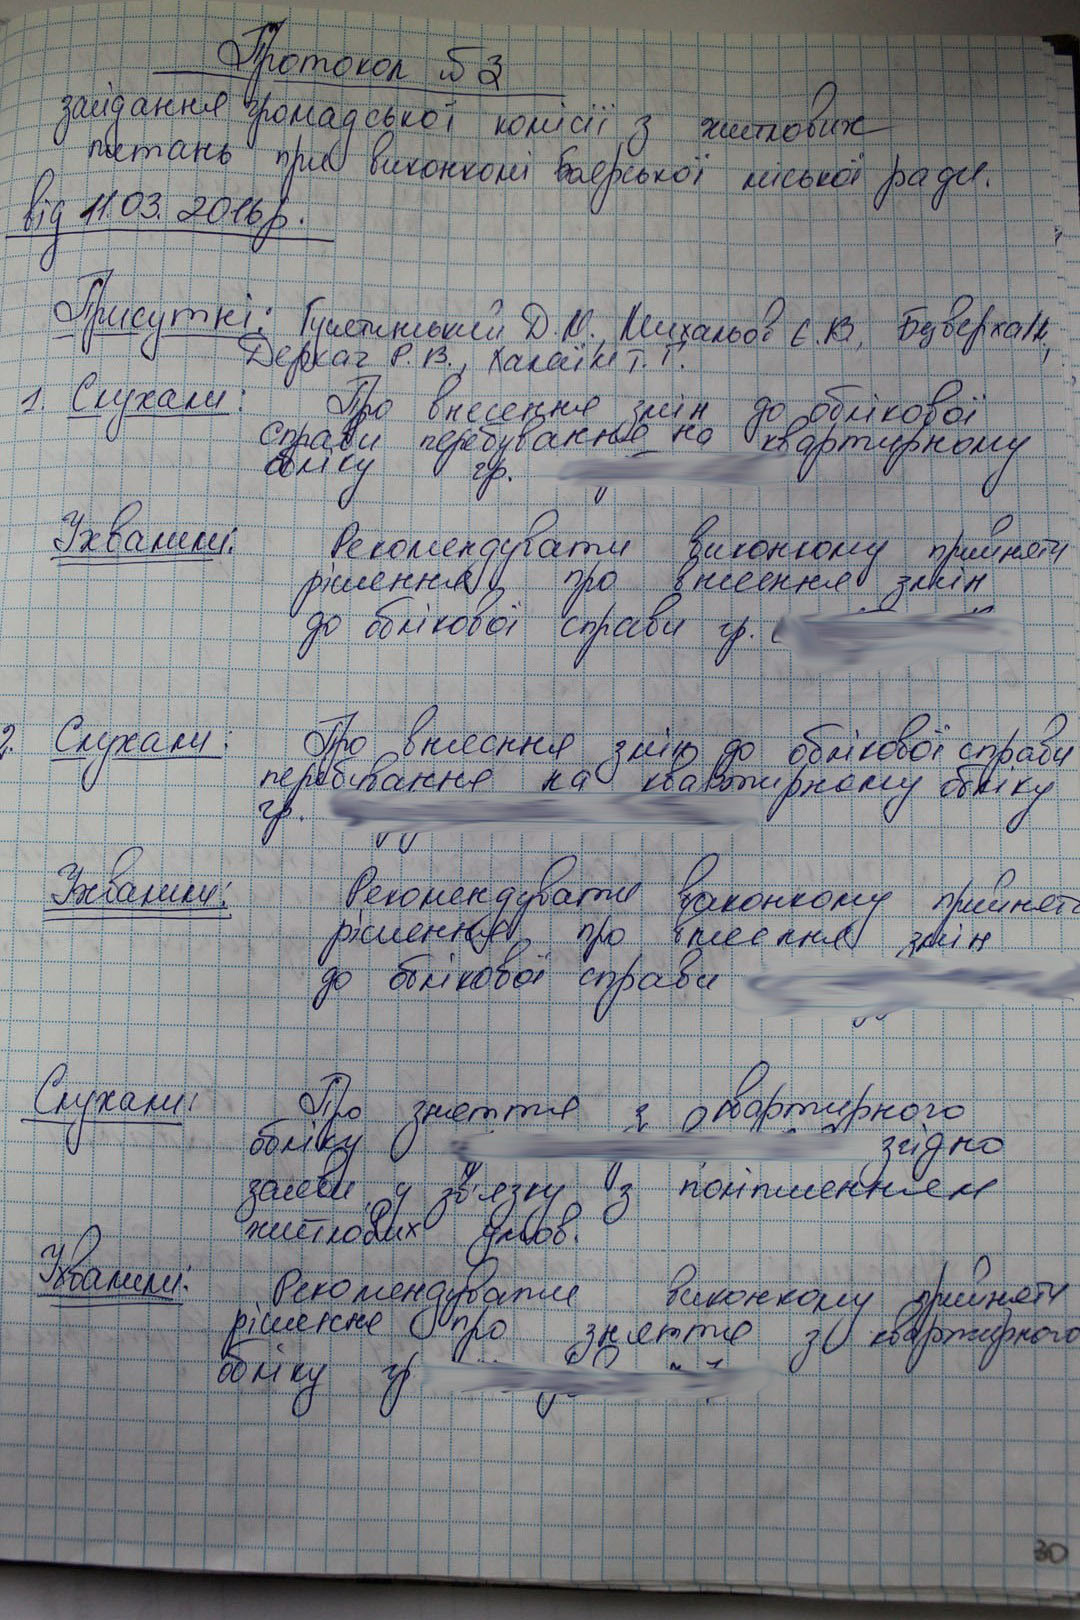 Протокол №3
зайдання громадської комісії з житлових
питань при виконкомі Боярської міської ради.
від 11.03.2016р.
Присутні: Д. М., Михальов Є. В.,
Деркач Р. В., Т. Г.
1. Слухали: Про внесення змін до облікової
справи перебування на квартирному
обліку гр.
Ухвалили: Рекомендувати виконкому прийняти
рішення про внесення змін
до облікової справи гр.
2. Слухали: Про внесення змін до облікової справи
перебування на квартирному обліку
гр.
Ухвалили: Рекомендувати виконкому прийняти
рішення про внесення змін
до облікової справи
Слухали: Про зняття з квартирного
обліку згідно
заяви у зв'язку з поліпшенням
житлових умов.
Ухвалили: Рекомендувати виконкому прийняти
рішення про зняття з квартирного
обліку гр
30